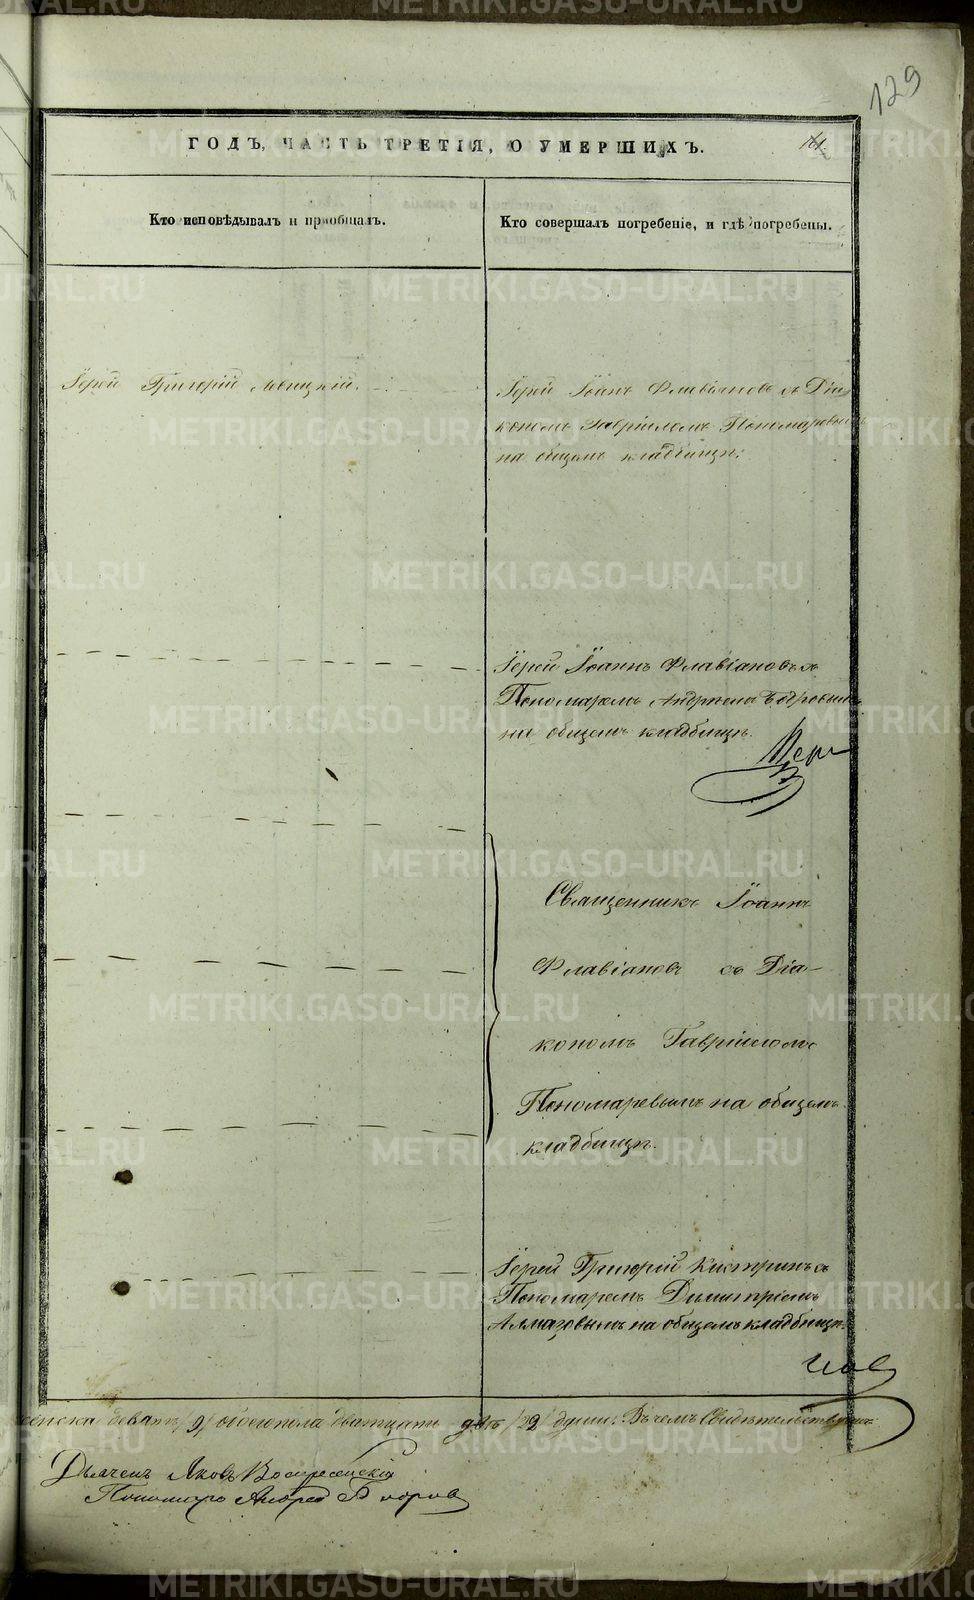 129
ГОДЪ, ЧАСТЬ ТРЕТІЯ, О УМЕРШИХЪ.
161.
Кто исповѣдывалъ и пріобщалъ.
Кто совершалъ погребеніе, и гдѣ погребены.
Іерей Григорій Левицкій.
Іерей Іоаннъ Флавіановъ съ Діа
кономъ Гавріиломъ Пономаревымъ
на общемъ кладбищѣ.
Іерей Іоаннъ Флавіановъ съ
Пономаремъ Андреемъ Бобровымъ
на общемъ кладбищѣ.
Священникъ Іоаннъ
Флавіановъ съ Діа-
кономъ Гавріиломъ
Пономаревымъ на общемъ
кладбищѣ.
Іерей Григорій Кастринъ съ
Пономаремъ Димитріемъ
Алмазовымъ на общемъ кладбищѣ.
женска девять /9/ обоего пола двадцать двѣ /22/ души: Въ чемъ Свидѣтельствуемъ
Дьячекъ Яковъ Воскресенскій
Пономарь Андрей Бобровъ
METRIKI.GASO-URAL.RU